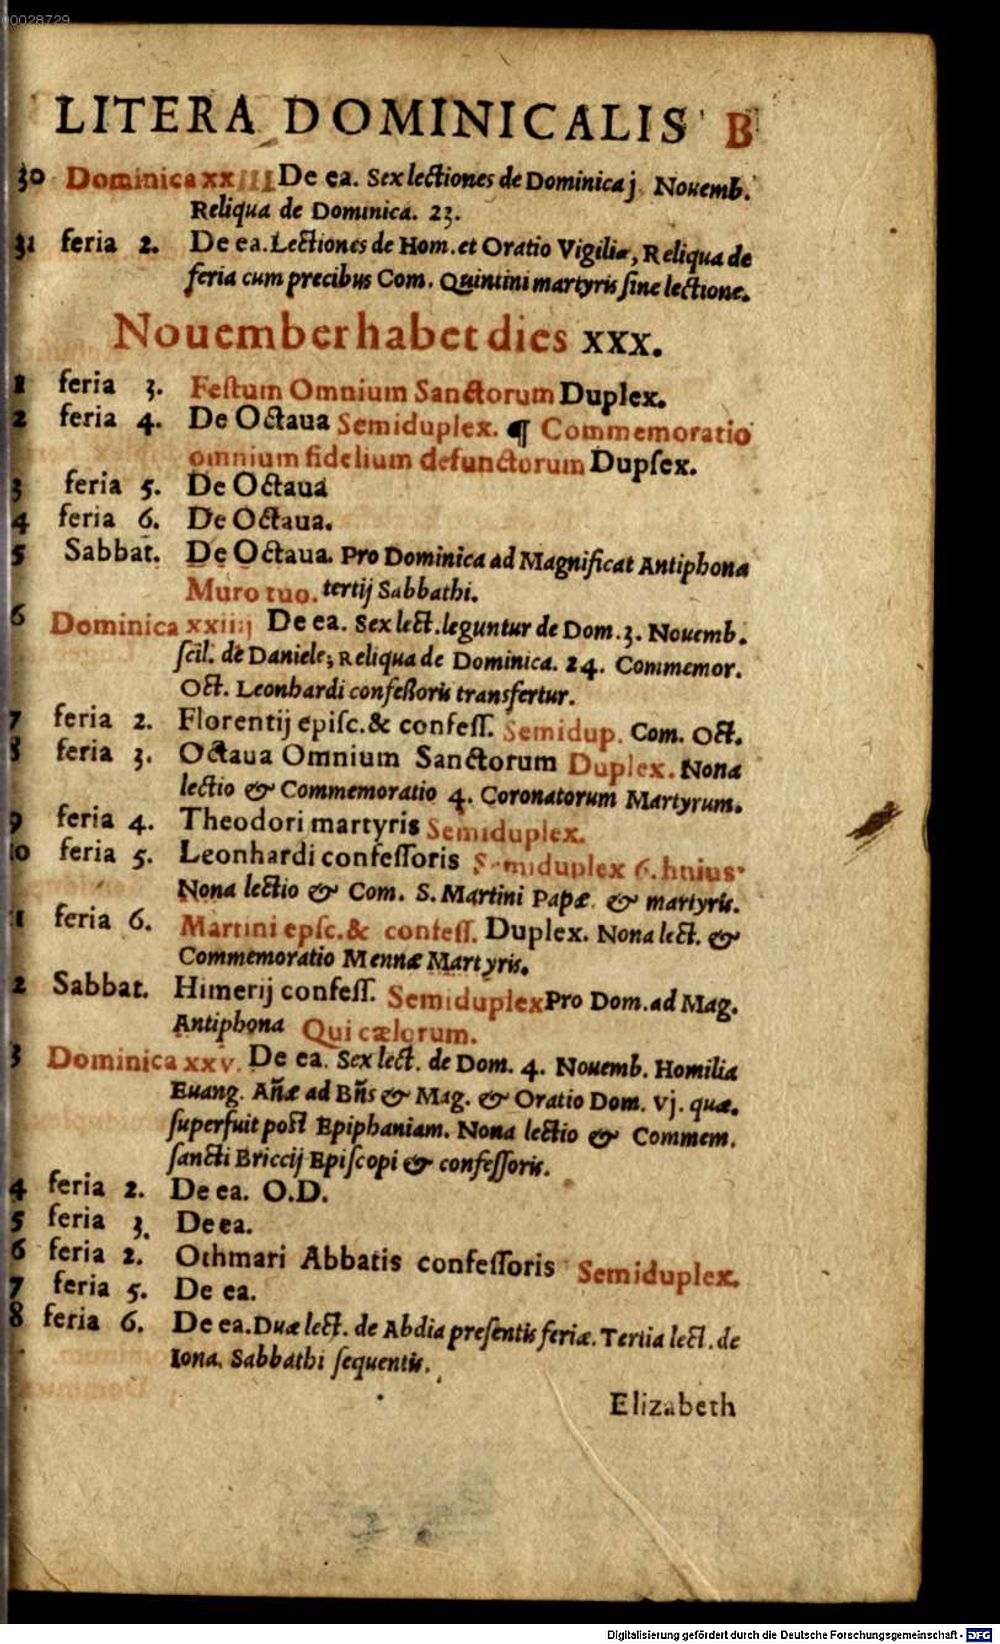 00028729
LITERA DOMINICALIS B
30 Dominica xxiii De ea. Sex lectiones de Dominica j. Nouemb.
Reliqua de Dominica. 23.
31 feria 2. De ea. Lectiones de Hom. et Oratio Vigiliæ, Reliqua de
feria cum precibus Com. Quintini martyris sine lectione.
Nouember habet dies xxx.
1 feria 3. Festum Omnium Sanctorum Duplex.
2 feria 4. De Octaua Semiduplex. ¶ Commemoratio
omnium fidelium defunctorum Dupsex.
3 feria 5. De Octaua
4 feria 6. De Octaua.
5 Sabbat. De Octaua. Pro Dominica ad Magnificat Antiphona
Muro tuo. tertij Sabbathi.
6 Dominica xxiiij De ea. Sex lect. leguntur de Dom. 3. Nouemb.
scil. de Daniele; Reliqua de Dominica. 24. Commemor.
Oct. Leonhardi confessoris transfertur.
7 feria 2. Florentij episc. & confess. Semidup. Com. Oct.
8 feria 3. Octaua Omnium Sanctorum Duplex. Nona
lectio & Commemoratio 4. Coronatorum Martyrum.
9 feria 4. Theodori martyris Semiduplex.
10 feria 5. Leonhardi confessoris Semiduplex 6. huius
Nona lectio & Com. S. Martini Papæ & martyris.
11 feria 6. Martini epsc. & confess. Duplex. Nona lect. &
Commemoratio Mennæ Martyris.
2 Sabbat. Himerij confess. Semiduplex Pro Dom. ad Mag.
Antiphona Qui cælorum.
3 Dominica xxv. De ea. Sex lect. de Dom. 4. Nouemb. Homilia
Euang. Añæ ad Bñs & Mag. & Oratio Dom. vj. quæ.
superfuit post Epiphaniam. Nona lectio & Commem.
sancti Briccij Episcopi & confessoris.
4 feria 2. De ea. O.D.
5 feria 3. De ea.
6 feria 2. Othmari Abbatis confessoris Semiduplex.
7 feria 5. De ea.
8 feria 6. De ea. Duæ lect. de Abdia presentis feriæ. Tertia lect. de
Iona. Sabbathi sequentis.
Elizabeth
Digitalisierung gefördert durch die Deutsche Forschungsgemeinschaft - DFG